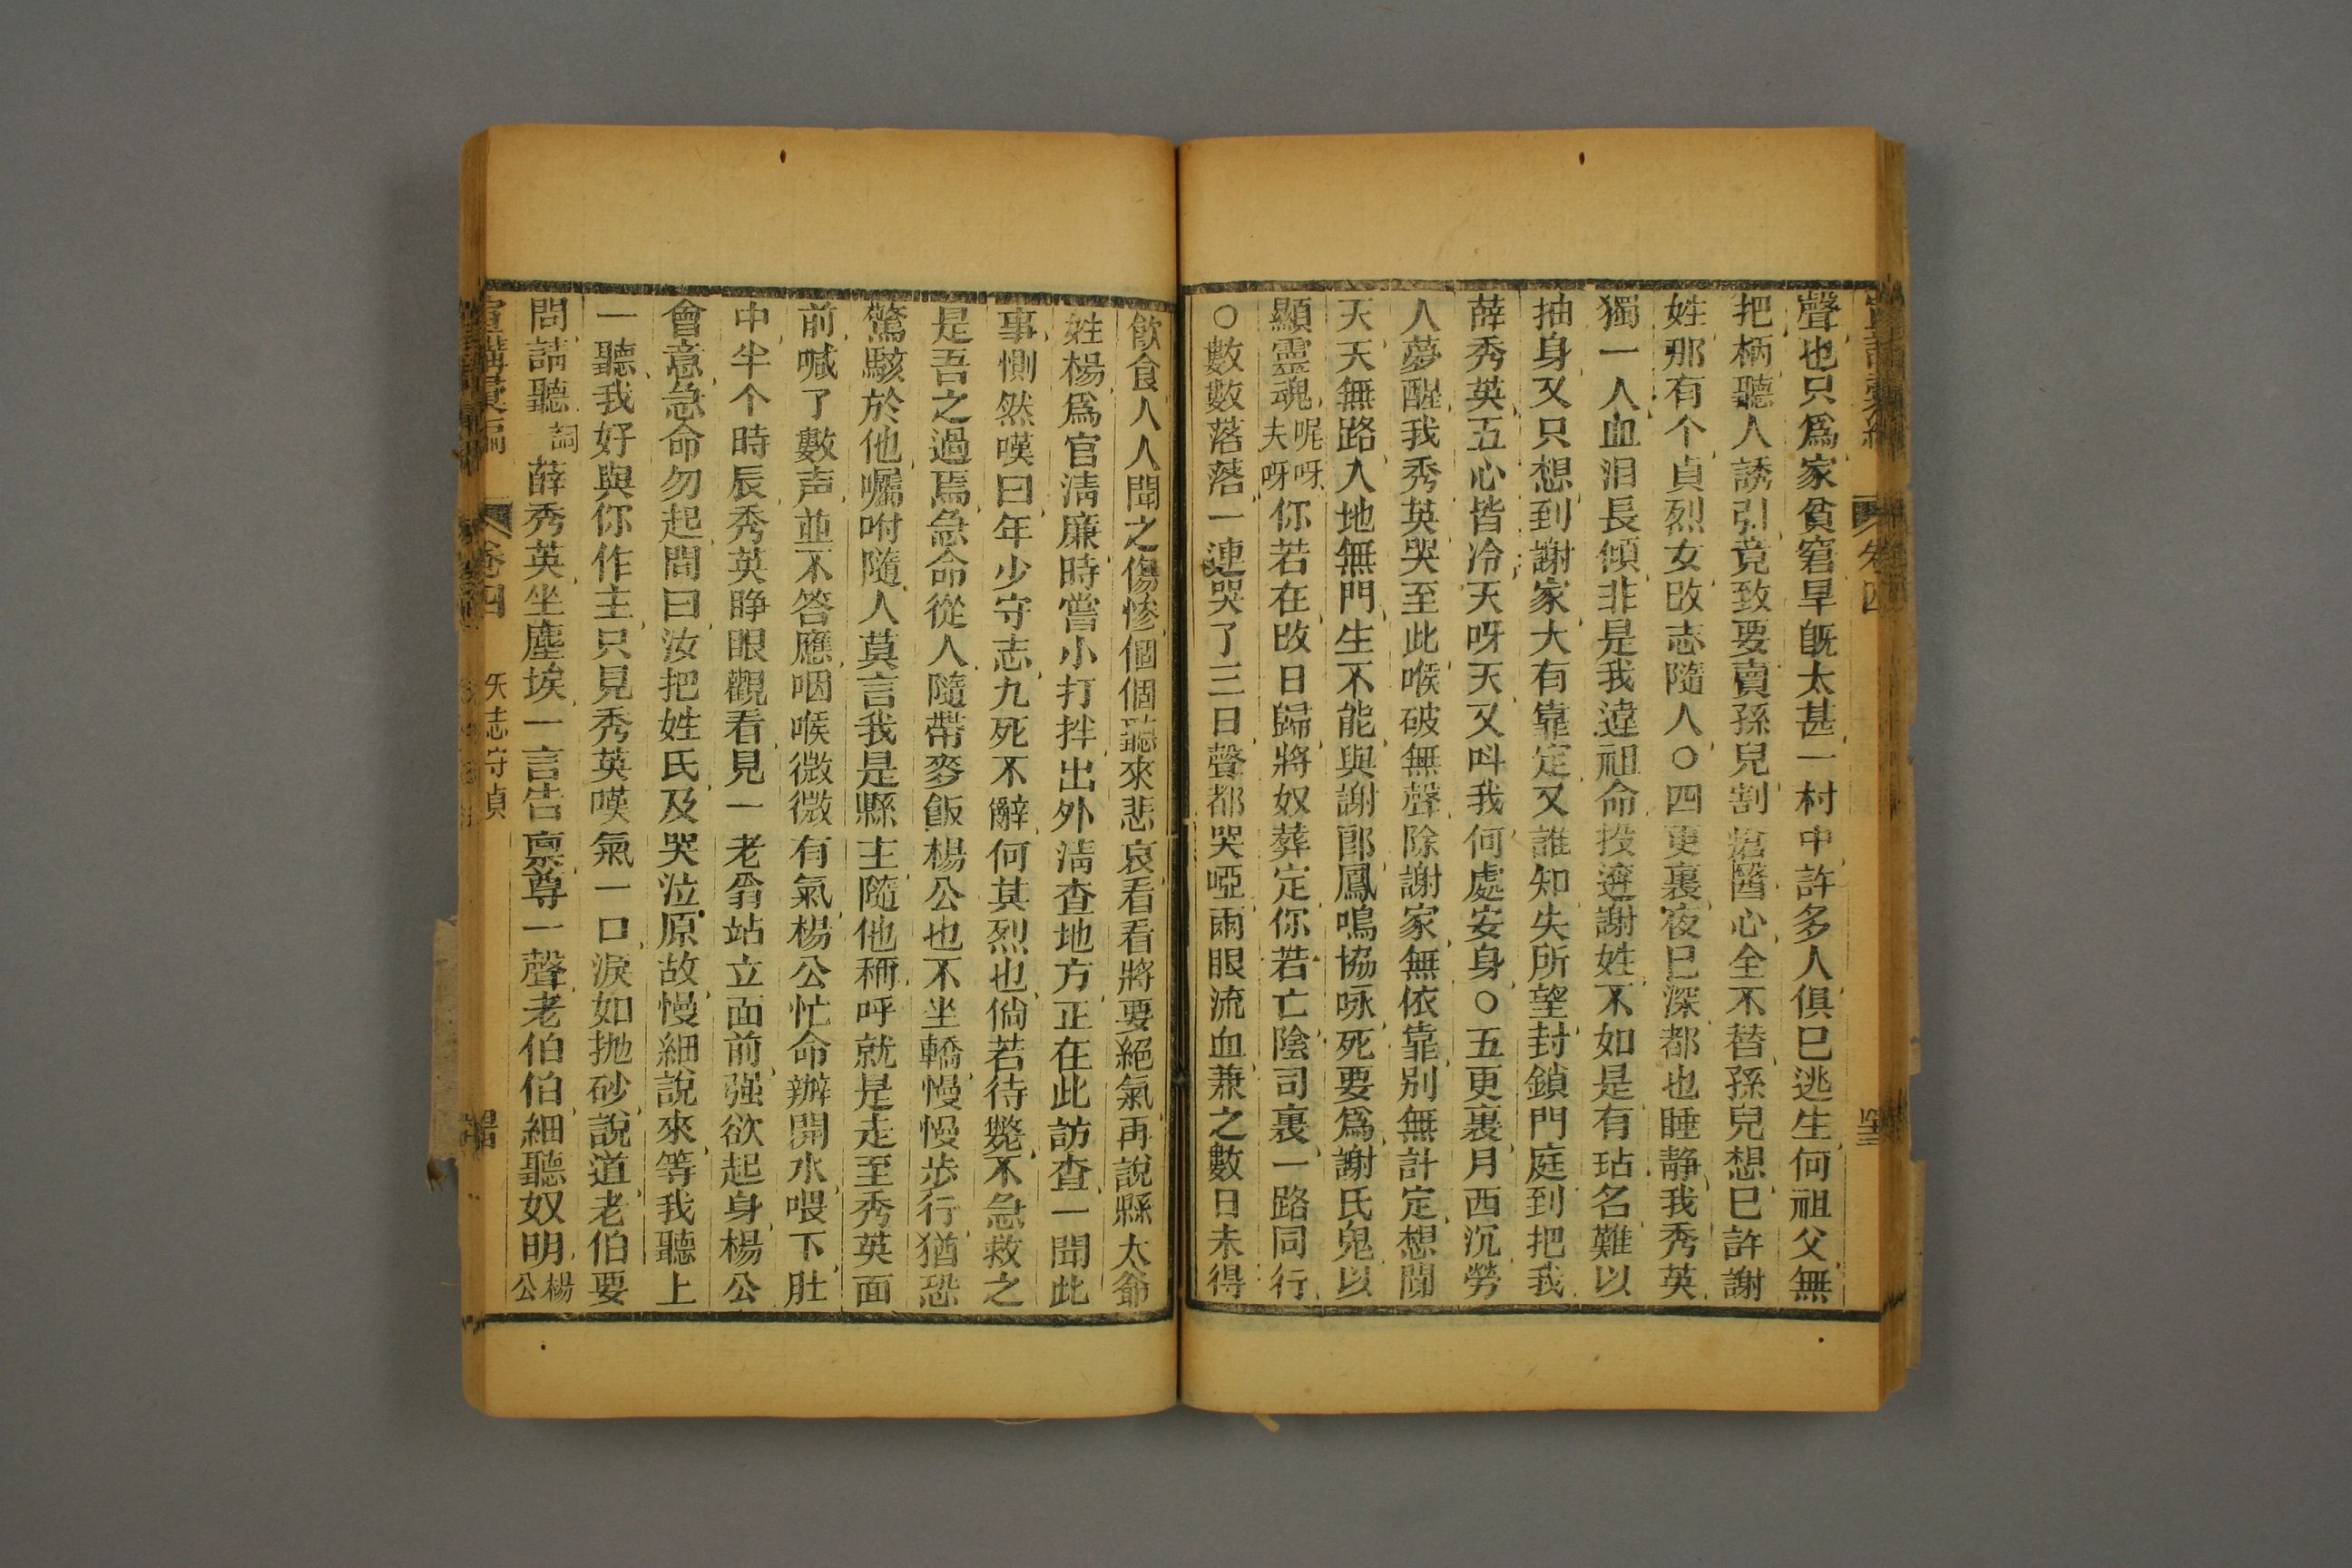 聲也只爲家貧窘旱旣太甚一村中許多人俱巳逃生何祖父無
把柄聽人誘引竟致要賣孫兒割瘡醫心全不替孫兒想巳許謝
姓那有个貞烈女改志隨人○四更裏夜巳深都也睡静我秀英
獨一人血泪長傾非是我違祖命投逩謝姓不如是有玷名難以
抽身又只想到謝家大有靠定又誰知失所望封鎖門庭到把我
薛秀英五心皆冷天呀天又呌我何處安身○五更裏月西沉勞
人夢醒我秀英哭至此喉破無聲除謝家無依靠別無計定想閙
天天無路入地無門生不能與謝郎鳳鳴協咏死要爲謝氏鬼以
顯靈魂呢呀夫呀你若在改日歸將奴葬定你若亡陰司裏一路同行
○數數落落一連哭了三日聲都哭啞兩眼流血兼之數日未得
飲食人人聞之傷慘個個聽來悲哀看看將要絕氣再說縣太爺
姓楊爲官淸廉時嘗小打拌出外淸查地方正在此訪查一聞此
事惻然嘆曰年少守志九死不辭何其烈也倘若待斃不急救之
是吾之過焉急命從人隨帶麥飯楊公也不坐轎慢慢步行猶恐
驚駭於他囑咐隨人莫言我是縣主隨他稱呼就是走至秀英面
前喊了數声並不答應咽喉微微有氣楊公忙命辦開水喂下肚
中半个時辰秀英睁眼觀看見一老翁站立面前强欲起身楊公
會意急命勿起問曰汝把姓氏及哭泣原故慢細說來等我聽上
一聽我好與你作主只見秀英嘆氣一口淚如抛砂說道老伯要
問請聽詞薛秀英坐塵埃一言告禀尊一聲老伯伯細聽奴明楊公
宣講彙編 卷四 矢志守貞